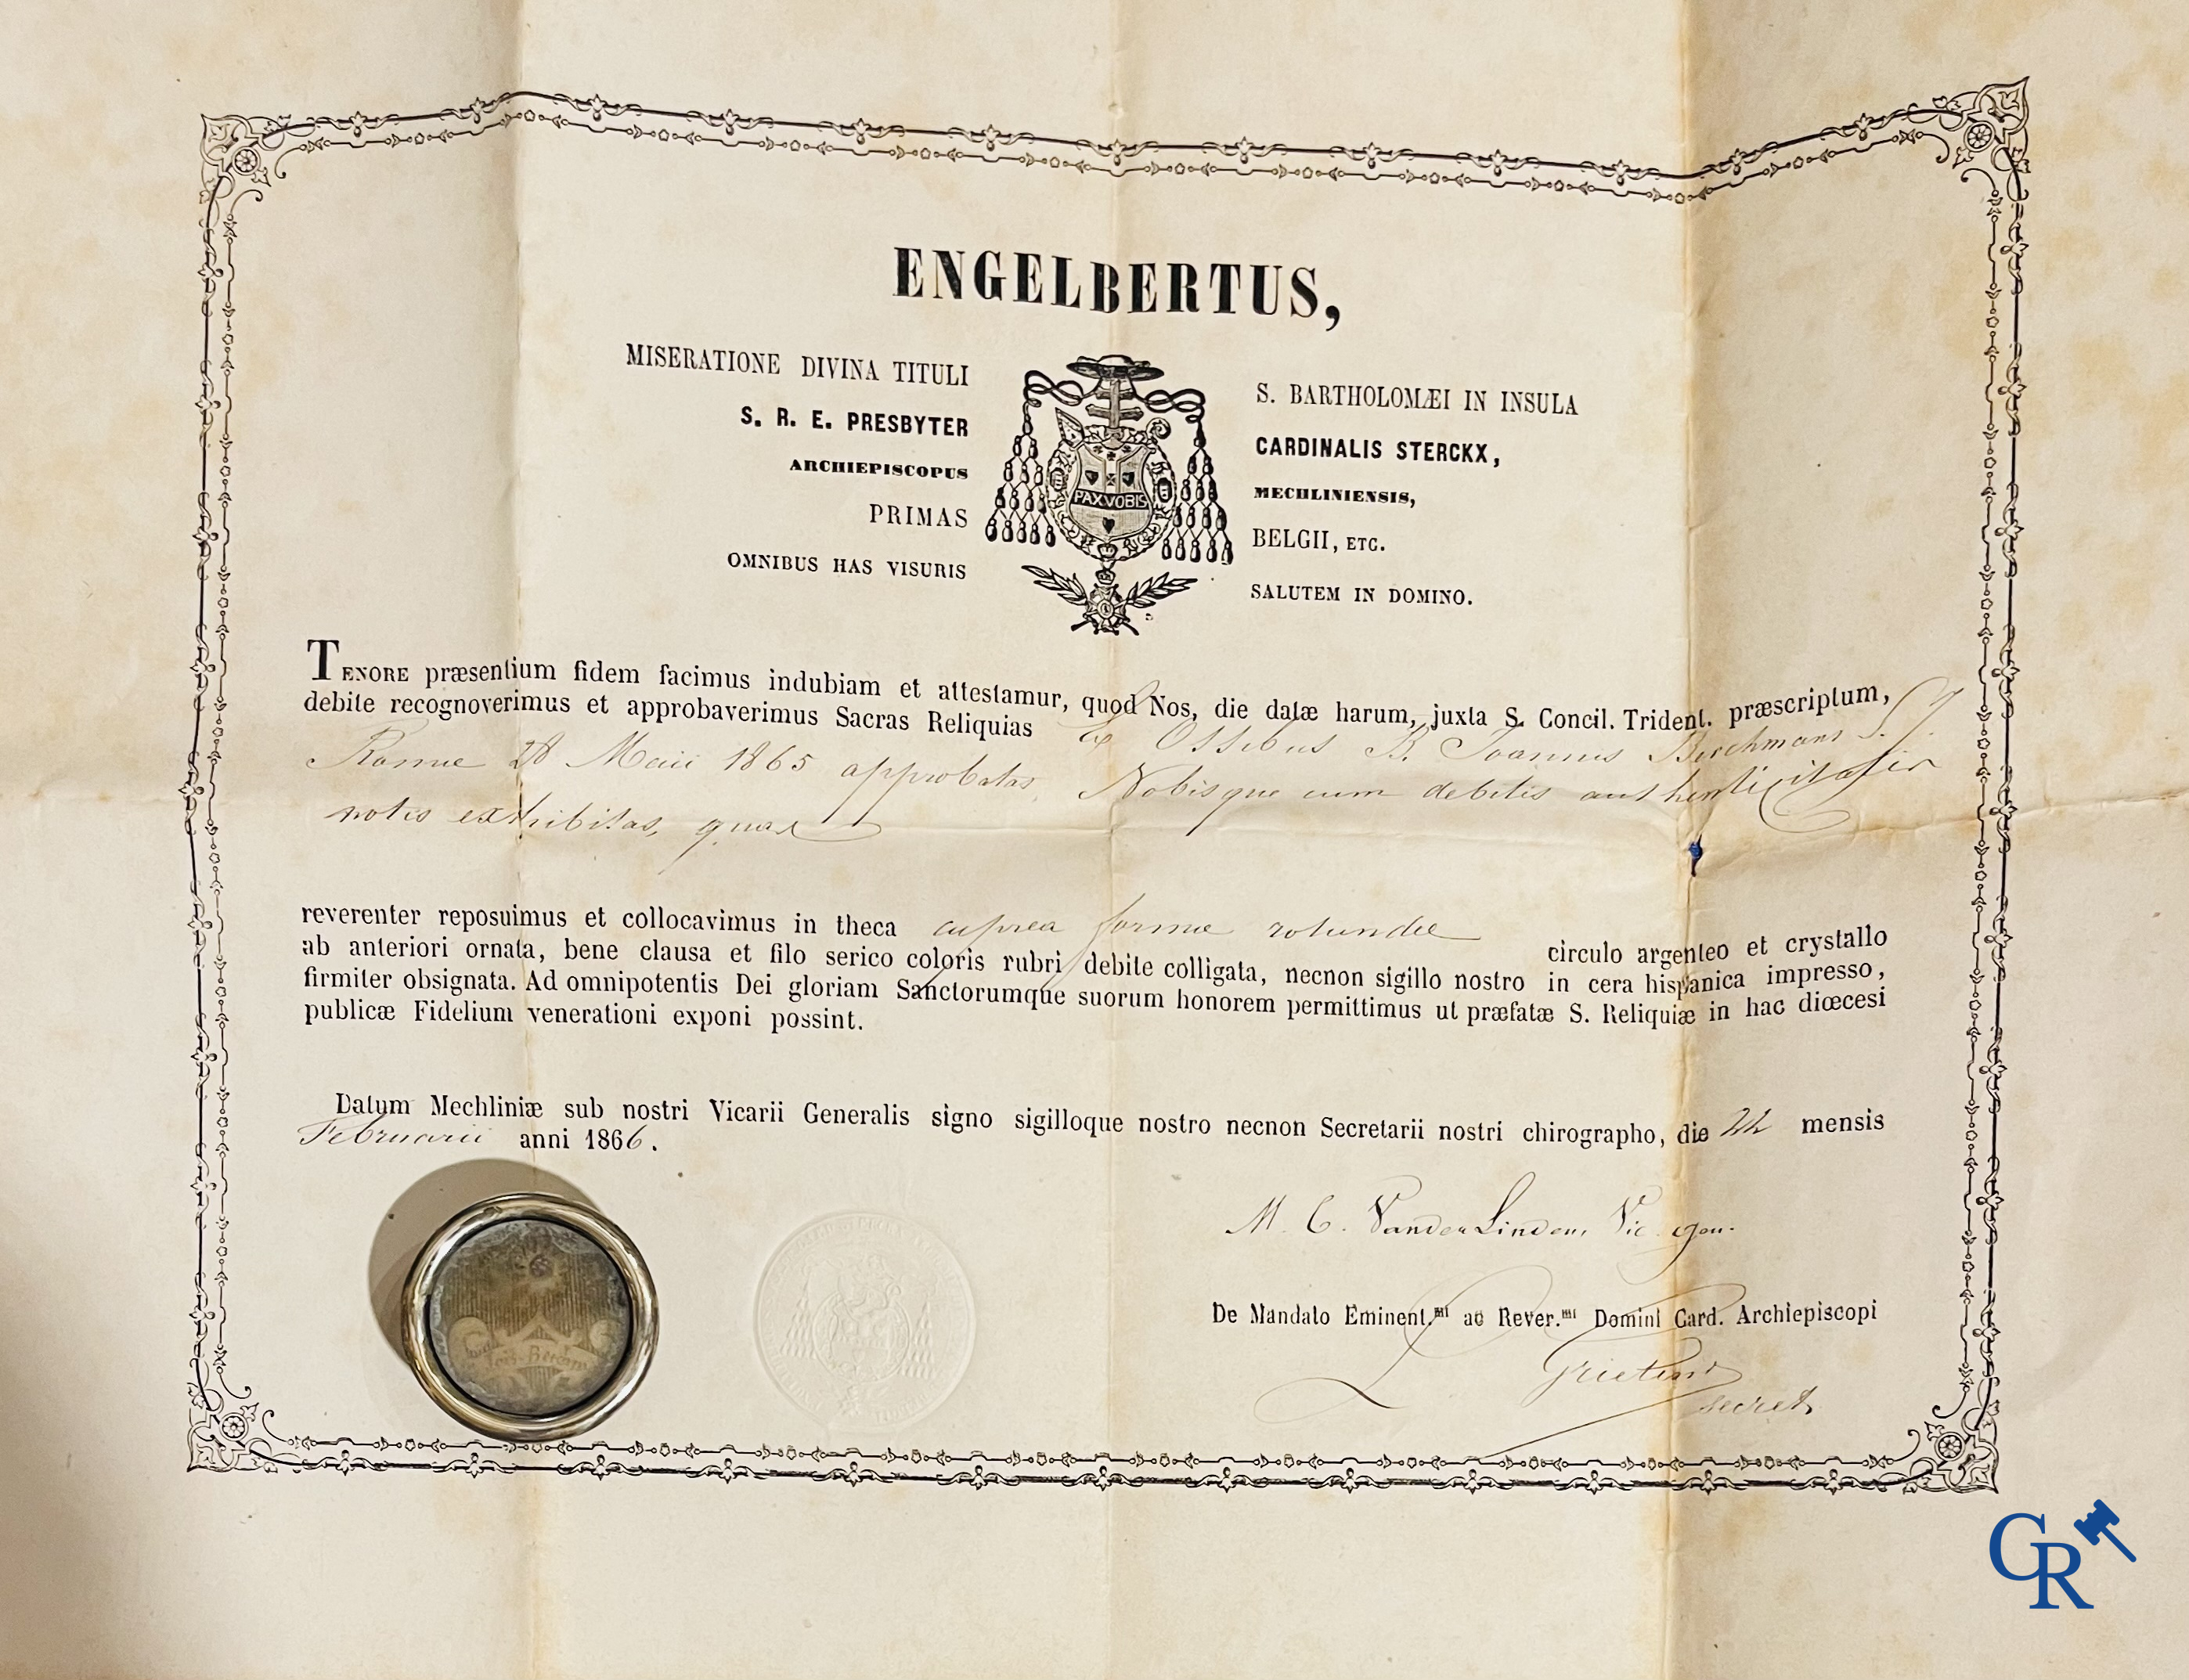 ENGELBERTUS,
MISERATIONE DIVINA TITULI S. BARTHOLOMÆI IN INSULA
S. R. E. PRESBYTER CARDINALIS STERCKX,
ARCHIEPISCOPUS MECHLINIENSIS,
PRIMAS BELGII, ETC.
OMNIBUS HAS VISURIS SALUTEM IN DOMINO.
PAX VOBIS
TENORE præsentium fidem facimus indubiam et attestamur, quod Nos, die datæ harum, juxta S. Concil. Trident. præscriptum,
debite recognoverimus et approbaverimus Sacras Reliquias Ex Ossibus B. Joannis Berchmans S. J.
Romae 28 Maii 1865 approbatas, Nobisque cum debitis authenticitatis
notis exhibitas, quas
reverenter reposuimus et collocavimus in theca cuprea formae rotundae circulo argenteo et crystallo
ab anteriori ornata, bene clausa et filo serico coloris rubri debite colligata, necnon sigillo nostro in cera hispanica impresso,
firmiter obsignata. Ad omnipotentis Dei gloriam Sanctorumque suorum honorem permittimus ut præfatæ S. Reliquiæ in hac diœcesi
publicæ Fidelium venerationi exponi possint.
Datum Mechliniæ sub nostri Vicarii Generalis signo sigilloque nostro necnon Secretarii nostri chirographo, die 22 mensis
Februarii anni 1866.
M. C. VanderLinden, Vic. gen.
De Mandato Eminent.mi ac Rever.mi Domini Card. Archiepiscopi
secret.
GR